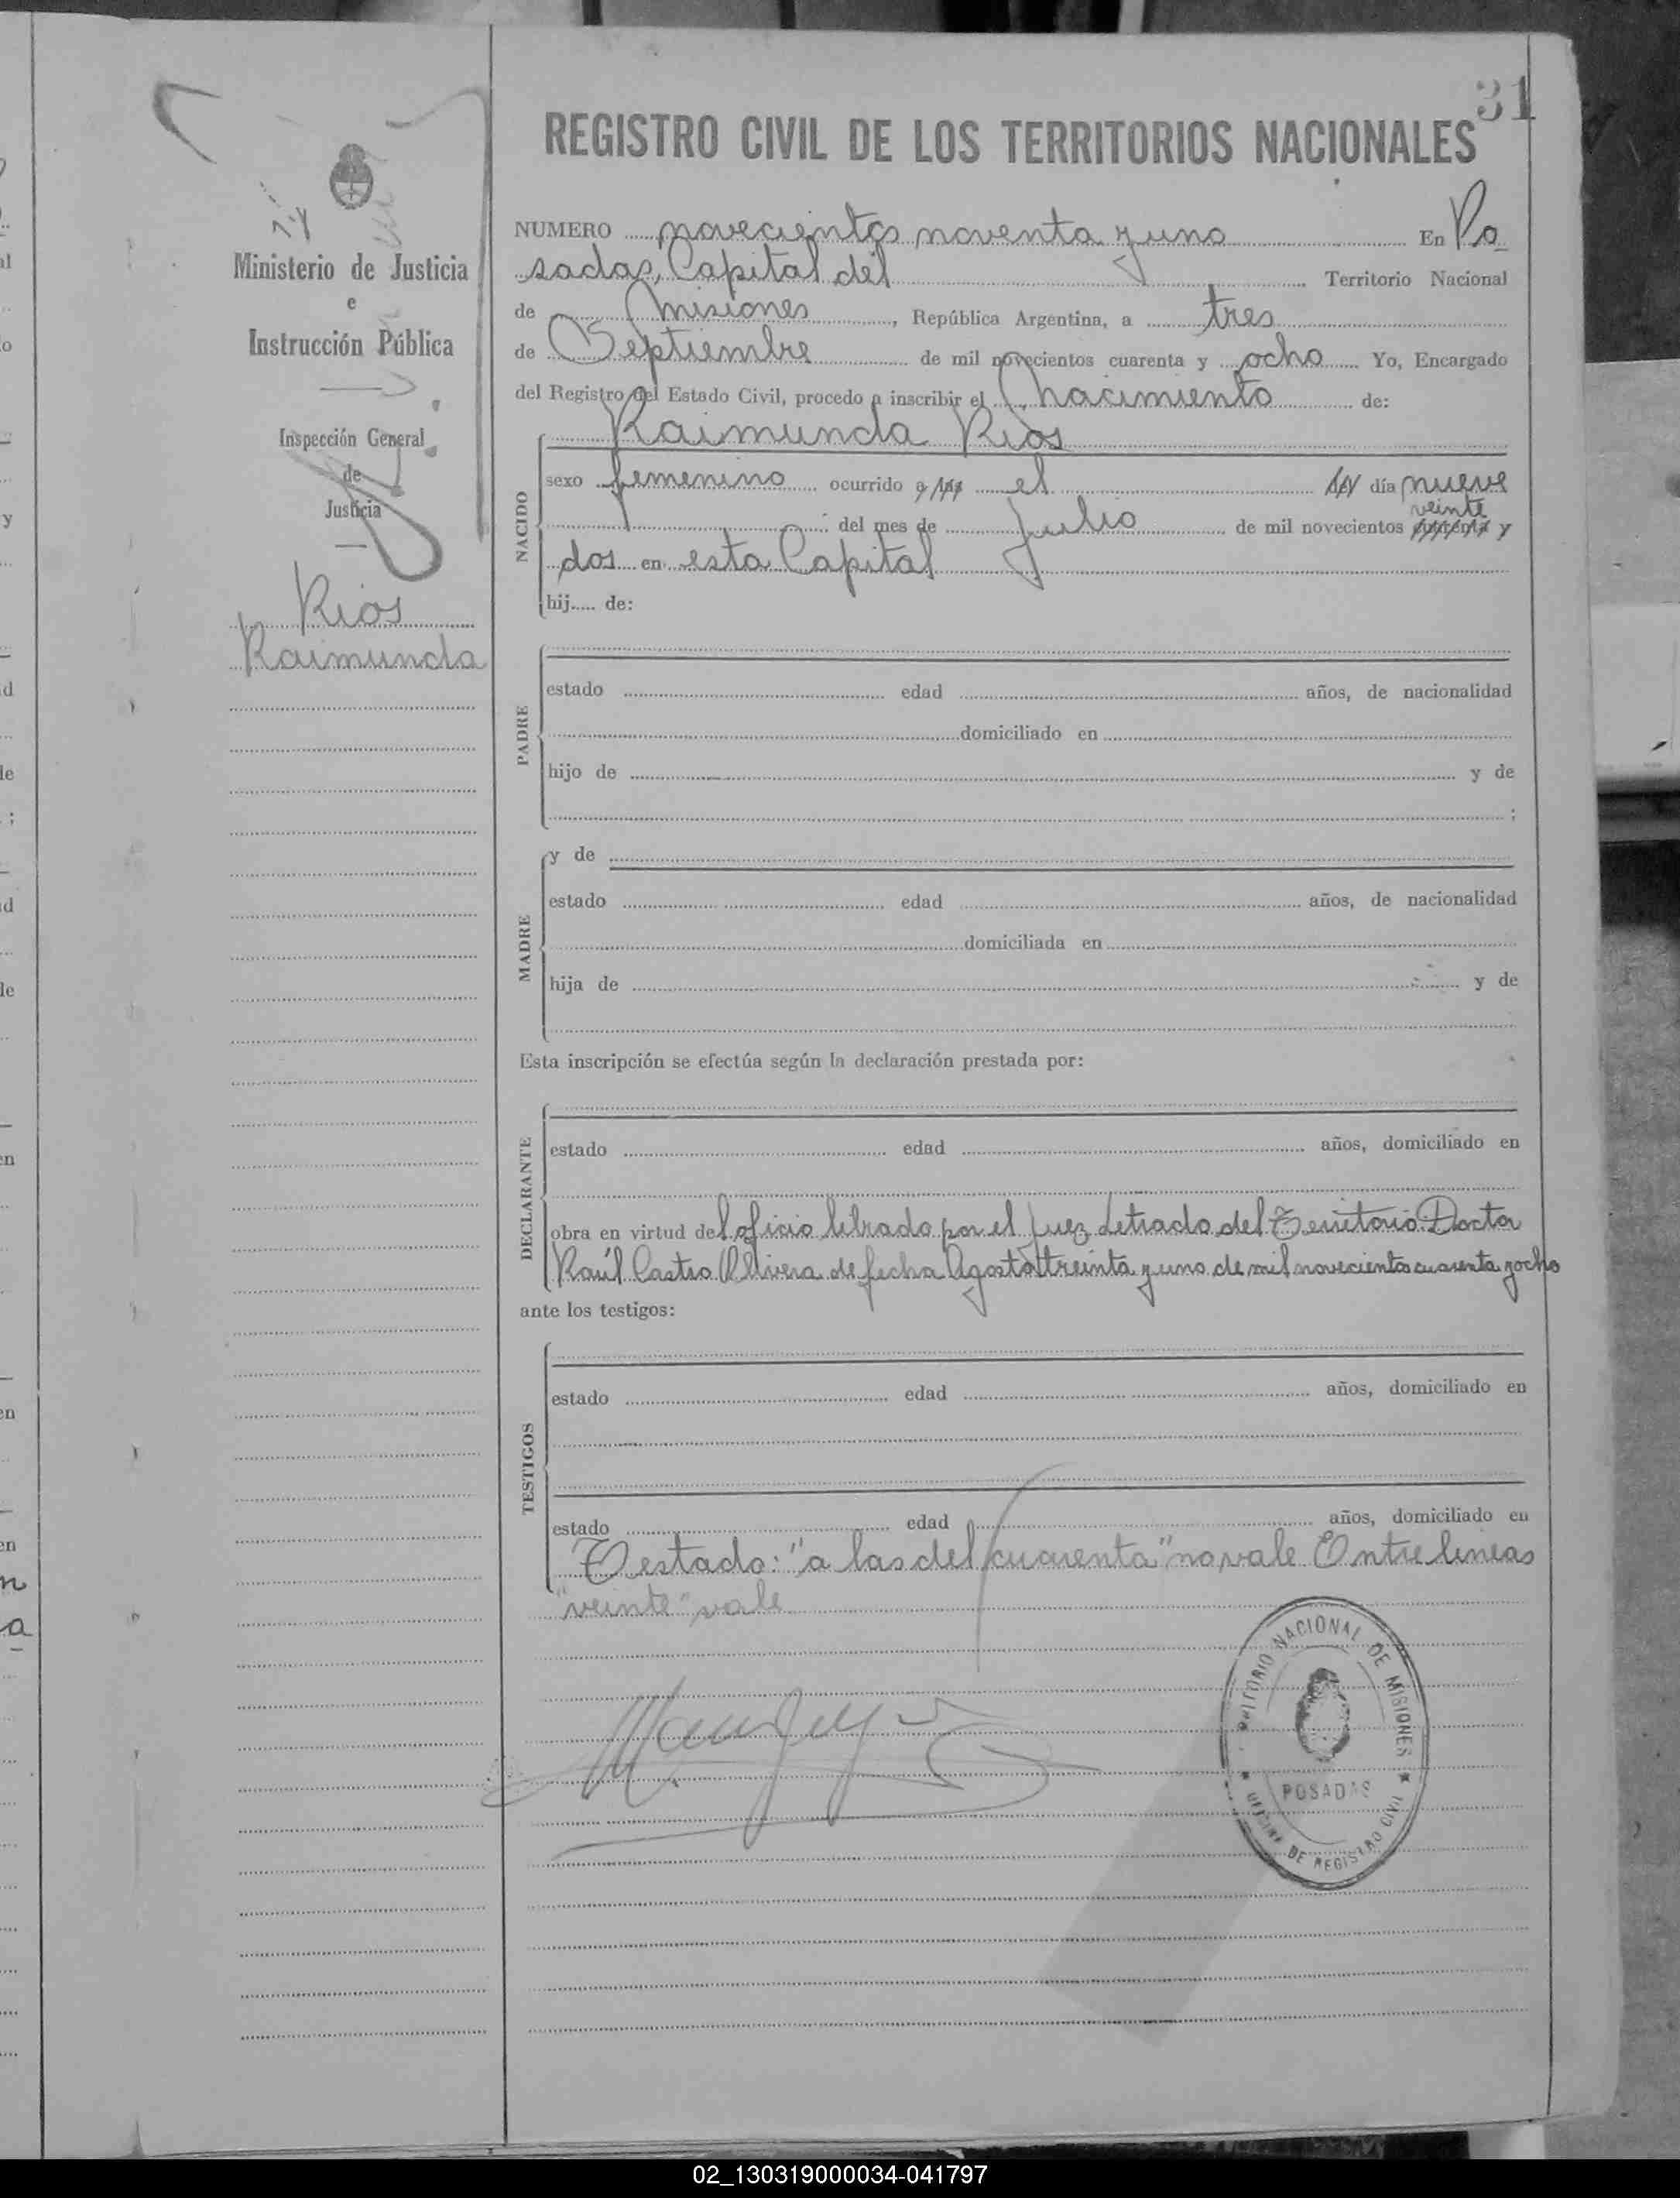 31
REGISTRO CIVIL DE LOS TERRITORIOS NACIONALES
Ministerio de Justicia
e
Instrucción Pública
Inspección General
de
Justicia
Rios
Raimunda
NUMERO novecientos noventa y uno En Po
sadas, Capital del Territorio Nacional
de Misiones, República Argentina, a tres
de Septiembre de mil novecientos cuarenta y ocho Yo, Encargado
del Registro del Estado Civil, procedo a inscribir el nacimiento de:
NACIDO
Raimunda Rios
sexo femenino ocurrido a las el del día nueve
del mes de Julio de mil novecientos cuarenta veinte y
dos en esta Capital
hij de:
PADRE
estado edad años, de nacionalidad
domiciliado en
hijo de y de
;
MADRE
y de
estado edad años, de nacionalidad
domiciliada en
hija de y de
Esta inscripción se efectúa según la declaración prestada por:
DECLARANTE
estado edad años, domiciliado en
obra en virtud del oficio librado por el Juez Letrado del Territorio Doctor
Raúl Castro Olivera de fecha Agosto treinta y uno de mil novecientos cuarenta y ocho
ante los testigos:
TESTIGOS
estado edad años, domiciliado en
estado edad años, domiciliado en
Testado: "a las del cuarenta" no vale Entre lineas
"veinte" vale
TERRITORIO NACIONAL DE MISIONES
POSADAS
OFICINA DE REGISTRO CIVIL
02_130319000034-041797